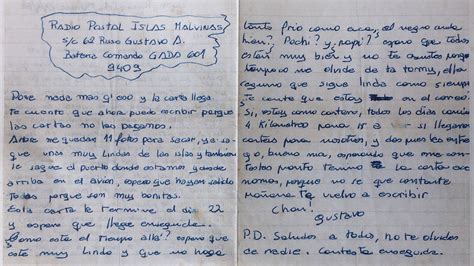 RADIO POSTAL ISLAS MALVINAS
S/C 62 Russo Gustavo A.
Bateria Comando GADA 601
9409
Pone nada mas q' eso y la carta llega
te cuento que ahora puedo escribir porque
las cartas no las pagamos.
me quedan 11 fotos para sacar, ya sa-
que unas muy Lindas de las islas y tambien
le saque el puerto donde estamos y desde
arriba en el avion, espero que hayan salido
Todas porque son muy bonitas.
Esta carta la termine el dia 22
y espero que llegue enseguida.
Como esta el tiempo alla? espero que
este muy Lindo y que no haga
tanto frio como aca, el negro anda
bien? Pochi? y papi? espero que todos
esten muy bien y no te asustes porque
tampoco me olvide de la tormy, ella
seguro que sigue linda como siempre
te conte que estoy en el correo.
Si, estoy como cartero, todos los dias camino
4 Kilometros para ir a si llegaron
cartas para nosotros, y dos pues les
bueno ma, esperando que me con-
testes pronto termino la carta
nomas, porque no se que contarte
mañana te vuelvo a escribir
Chau.
Gustavo
P.D. Saludos a todos, no te olvides
de nadie. Contesta enseguida.